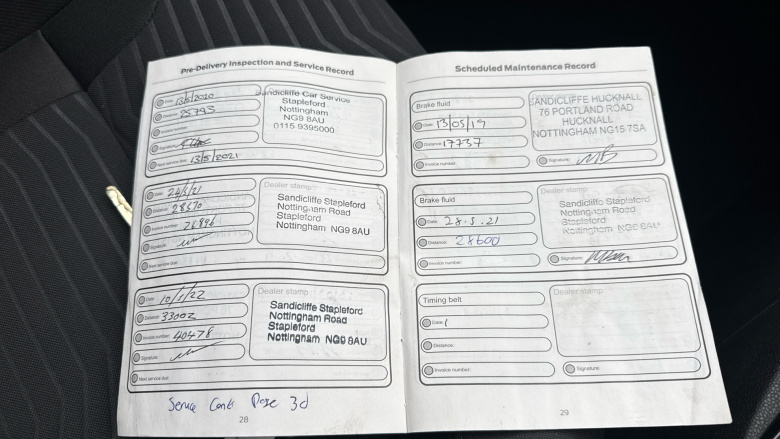 Pre-Delivery Inspection and Service Record
Date: 13/5/2020
Distance: 25793
Invoice number:
Signature:
Next service due: 13/5/2021
Sandicliffe Car Service
Stapleford
Nottingham
NG9 8AU
0115 9395000
Date: 24/5/21
Distance: 28570
Invoice number: 26896
Signature:
Next service due:
Dealer stamp:
Sandicliffe Stapleford
Nottingham Road
Stapleford
Nottingham NG9 8AU
Date: 10/1/22
Distance: 33002
Invoice number: 40478
Signature:
Next service due:
Dealer stamp:
Sandicliffe Stapleford
Nottingham Road
Stapleford
Nottingham NG9 8AU
Service Cont Page 3
28
Scheduled Maintenance Record
Brake fluid
Date: 13/05/19
Distance: 17737
Invoice number:
SANDICLIFFE HUCKNALL
76 PORTLAND ROAD
HUCKNALL
NOTTINGHAM NG15 7SA
Signature:
Brake fluid
Date: 28.5.21
Distance: 28600
Invoice number:
Dealer stamp:
Sandicliffe Stapleford
Nottingham Road
Stapleford
Nottingham NG9 8AU
Signature:
Timing belt
Date:
Distance:
Invoice number:
Dealer stamp:
Signature:
29